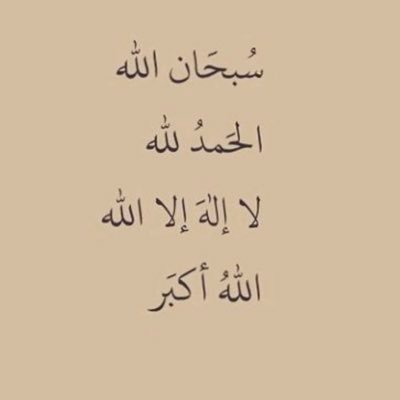 سُبحَان الله
الحَمدُ لله
لا إلهَ إلا الله
اللهُ أكبَر